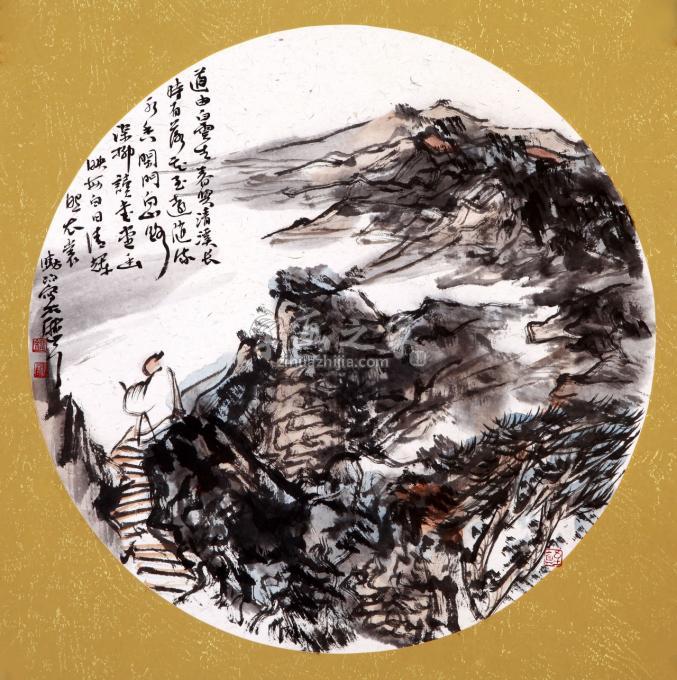 道由白雲盡春與清溪長
時有落花至遠隨流
水香閑門向山路
深柳讀書堂幽
映每白日清輝
照衣裳
画之家
huazhijia.com